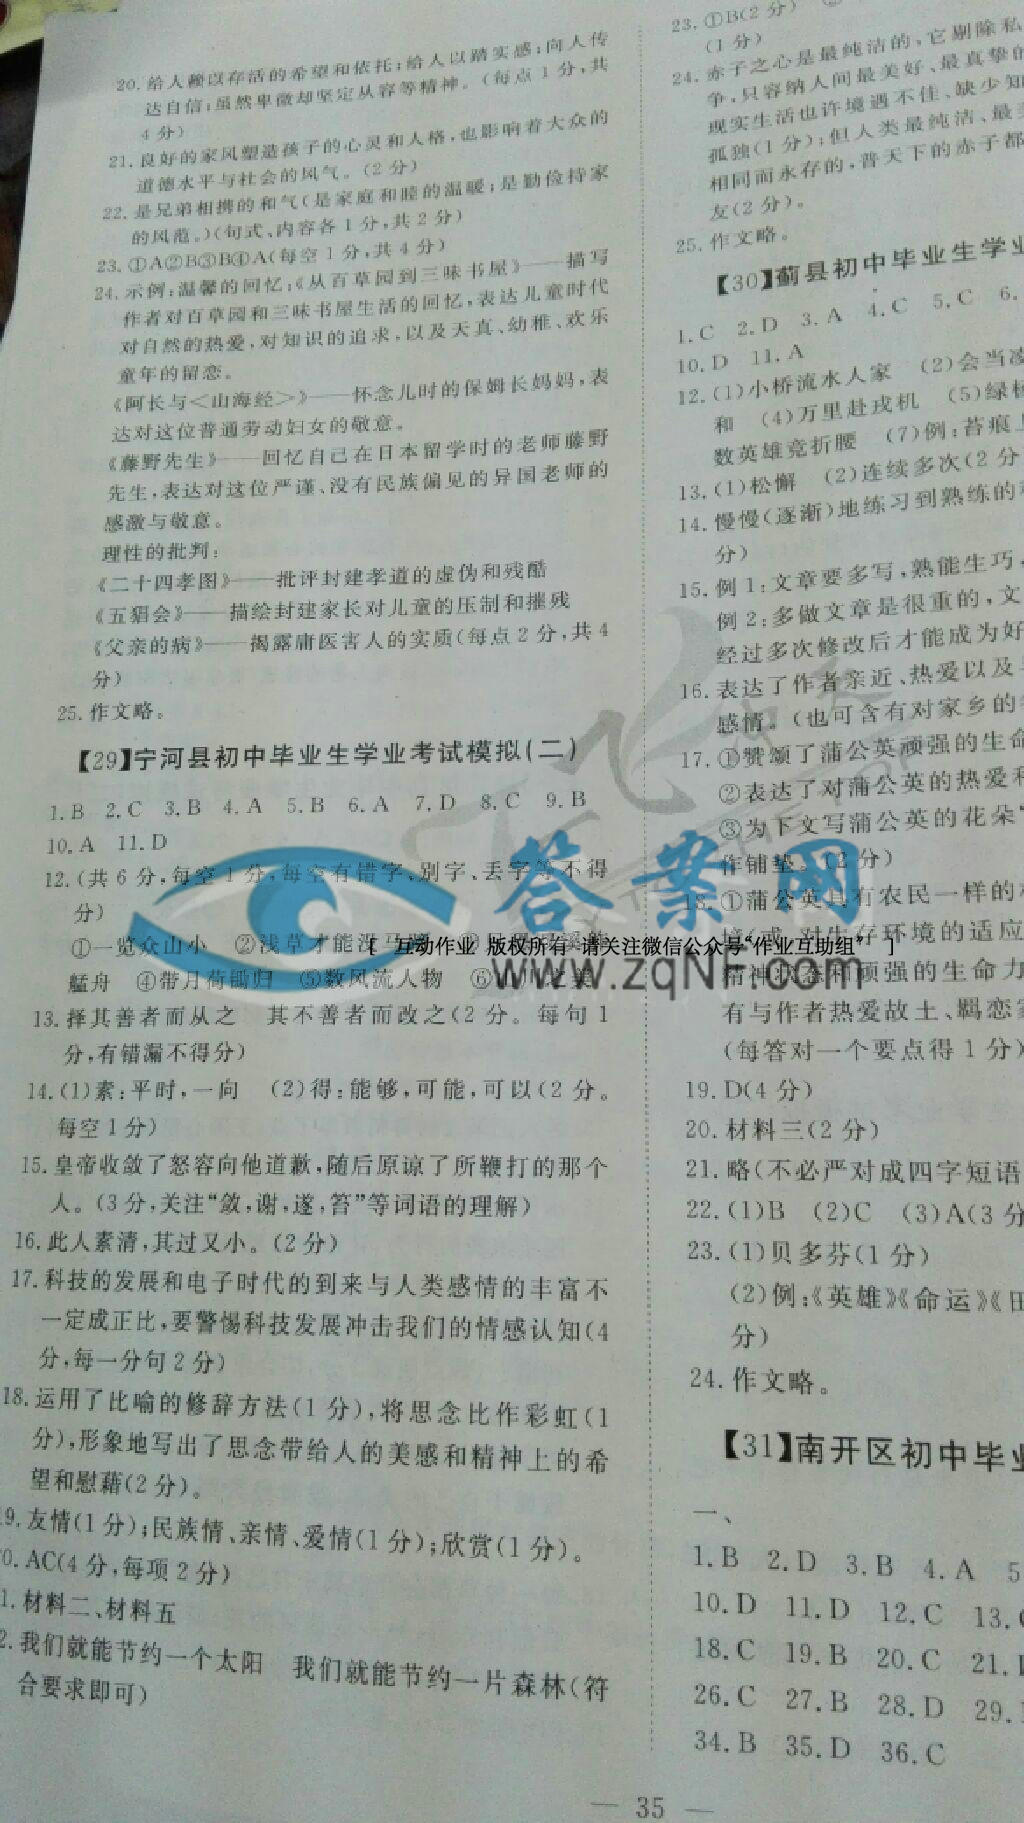 20.给人赖以存活的希望和依托;给人以踏实感;向人传
达自信;虽然卑微却坚定从容等精神。(每点1分,共
4分)
21.良好的家风塑造孩子的心灵和人格,也影响着大众的
道德水平与社会的风气。(2分)
22.是兄弟相携的和气(是家庭和睦的温暖;是勤俭持家
的风范。)(句式、内容各1分,共2分)
23.①A②B③B④A(每空1分,共4分)
24.示例:温馨的回忆:《从百草园到三味书屋》——描写
作者对百草园和三味书屋生活的回忆,表达儿童时代
对自然的热爱,对知识的追求,以及天真、幼稚、欢乐
童年的留恋。
《阿长与<山海经>》——怀念儿时的保姆长妈妈,表
达对这位普通劳动妇女的敬意。
《藤野先生》——回忆自己在日本留学时的老师藤野
先生,表达对这位严谨、没有民族偏见的异国老师的
感激与敬意。
理性的批判:
《二十四孝图》——批评封建孝道的虚伪和残酷
《五猖会》——描绘封建家长对儿童的压制和摧残
《父亲的病》——揭露庸医害人的实质(每点2分,共4
分)
25.作文略。
【29】宁河县初中毕业生学业考试模拟(二)
1.B 2.C 3.B 4.A 5.B 6.A 7.D 8.C 9.B
10.A 11.D
12.(共6分,每空1分,每空有错字、别字、丢字等不得
分)
①一览众山小 ②浅草才能没马蹄
艋舟 ④带月荷锄归 ⑤数风流人物 ⑥
13.择其善者而从之 其不善者而改之(2分。每句1
分,有错漏不得分)
14.(1)素:平时,一向 (2)得:能够,可能,可以(2分。
每空1分)
15.皇帝收敛了怒容向他道歉,随后原谅了所鞭打的那个
人。(3分,关注“敛,谢,遂,笞”等词语的理解)
16.此人素清,其过又小。(2分)
17.科技的发展和电子时代的到来与人类感情的丰富不
一定成正比,要警惕科技发展冲击我们的情感认知(4
分,每一分句2分)
18.运用了比喻的修辞方法(1分),将思念比作彩虹(1
分),形象地写出了思念带给人的美感和精神上的希
望和慰藉(2分)。
9.友情(1分);民族情、亲情、爱情(1分);欣赏(1分)。
0.AC(4分,每项2分)
1.材料二、材料五
2.我们就能节约一个太阳 我们就能节约一片森林(符
合要求即可)
23.①B(2分)
(1分)
24.赤子之心是最纯洁的,它剔除私
争,只容纳人间最美好、最真挚的
现实生活也许境遇不佳、缺少知
孤独(1分);但人类最纯洁、最
相同而永存的,普天下的赤子都
友(2分)。
25.作文略。
【30】蓟县初中毕业生学业
1.C 2.D 3.A 4.C 5.C 6.
10.D 11.A
12.(1)小桥流水人家 (2)会当凌
和 (4)万里赴戎机 (5)绿
数英雄竞折腰 (7)例:苔痕上
13.(1)松懈 (2)连续多次(2分
14.慢慢(逐渐)地练习到熟练的
分)
15.例1:文章要多写,熟能生巧,
例2:多做文章是很重的,文
经过多次修改后才能成为好
16.表达了作者亲近、热爱以及
感情。(也可含有对家乡的
17.①赞颂了蒲公英顽强的生命
②表达了对蒲公英的热爱和
③为下文写蒲公英的花朵
作铺垫。(2分)
18.①蒲公英具有农民一样的
境(或:对生存环境的适应
精神状态和顽强的生命力
有与作者热爱故土、羁恋家
(每答对一个要点得1分)
19.D(4分)
20.材料三(2分)
21.略(不必严对成四字短语
22.(1)B (2)C (3)A(3分
23.(1)贝多芬(1分)
(2)例:《英雄》《命运》《田
分)
24.作文略。
【31】南开区初中毕业
一、
1.B 2.D 3.B 4.A 5
10.D 11.D 12.C 13.
18.C 19.B 20.C 21.
26.C 27.B 28.D 29.
34.B 35.D 36.C
— 35 —
答案网
www.zqnf.com
[ 互动作业 版权所有 请关注微信公众号“作业互助组” ]